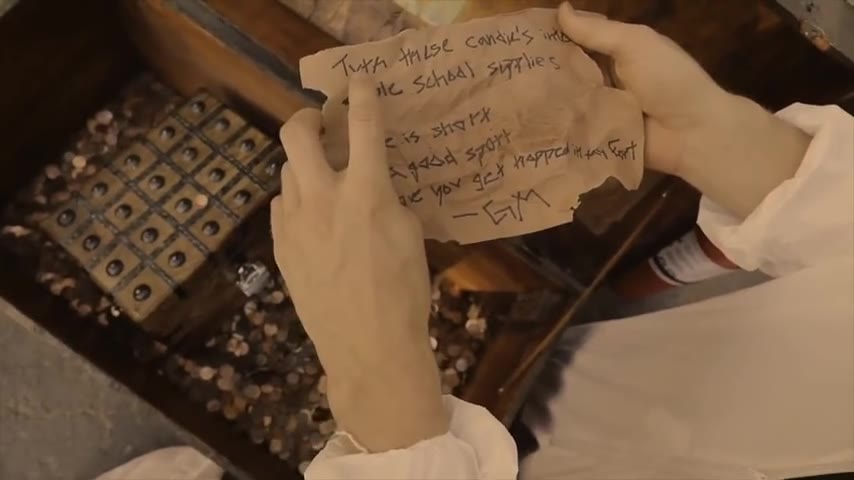 Turn these candle's into
School supplies
is short
good sport
you get trapped in
-GM